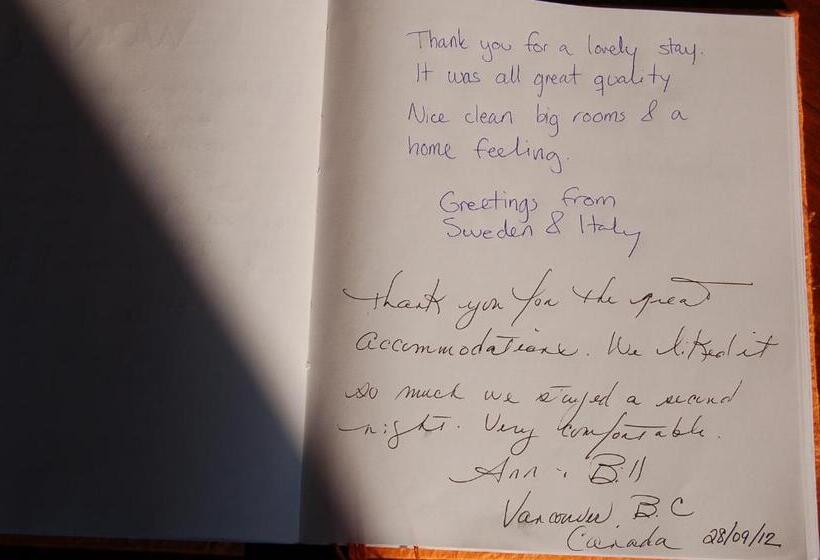 Thank you for a lovely stay.
It was all great quality
Nice clean big rooms & a
home feeling.
Greetings from
Sweden & Italy
Thank you for the great
accommodations. We liked it
so much we stayed a second
night. Very comfortable.
Ann & Bill
Vancouver B.C
Canada 28/09/12